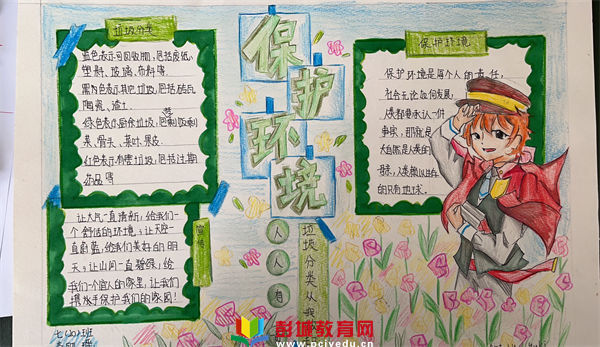 垃圾分类
蓝色表示可回收物,包括废纸,
塑料、玻璃、布料等.
黑色表示其他垃圾,包括砖瓦
陶瓷、渣土
绿色表示厨余垃圾,包括剩饭剩
菜、骨头、菜叶、果皮.
红色表示有害垃圾,包括过期
药品等
让大气一直清新,给我们一
个舒适的环境。让天空一
直蔚蓝,给我们美好的明
天。让山间一直碧绿,给
我们一个宜人的家里,让我们
携起手保护我们的家园!
保护环境
人人有
垃圾分类从我
保护环境
保护环境是每个人的责任,
社会无论如何发展,
人类都要承认一件
事实,那就是
大自然是人类的
母亲,人类赖以生存
的只有地球。
彭城教育网
www.pcjyedu.cn